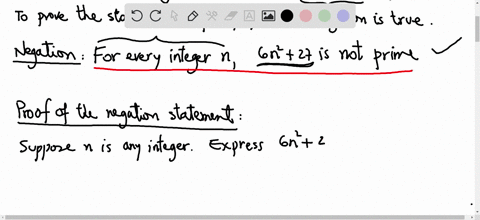 To prove the sta m is true.
Negation: For every integer n, 6n²+27 is not prime
Proof of the negation statement:
Suppose n is any integer. Express 6n²+2